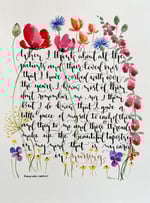 When I think about all the
patients and their loved ones
that I have worked with over
the years, I know most of them
don't remember me nor I them
But I do know that I gave a
little piece of myself to each of them
and they to me and those threads
make up the beautiful tapestry
in my mind that is my career
in nursing.